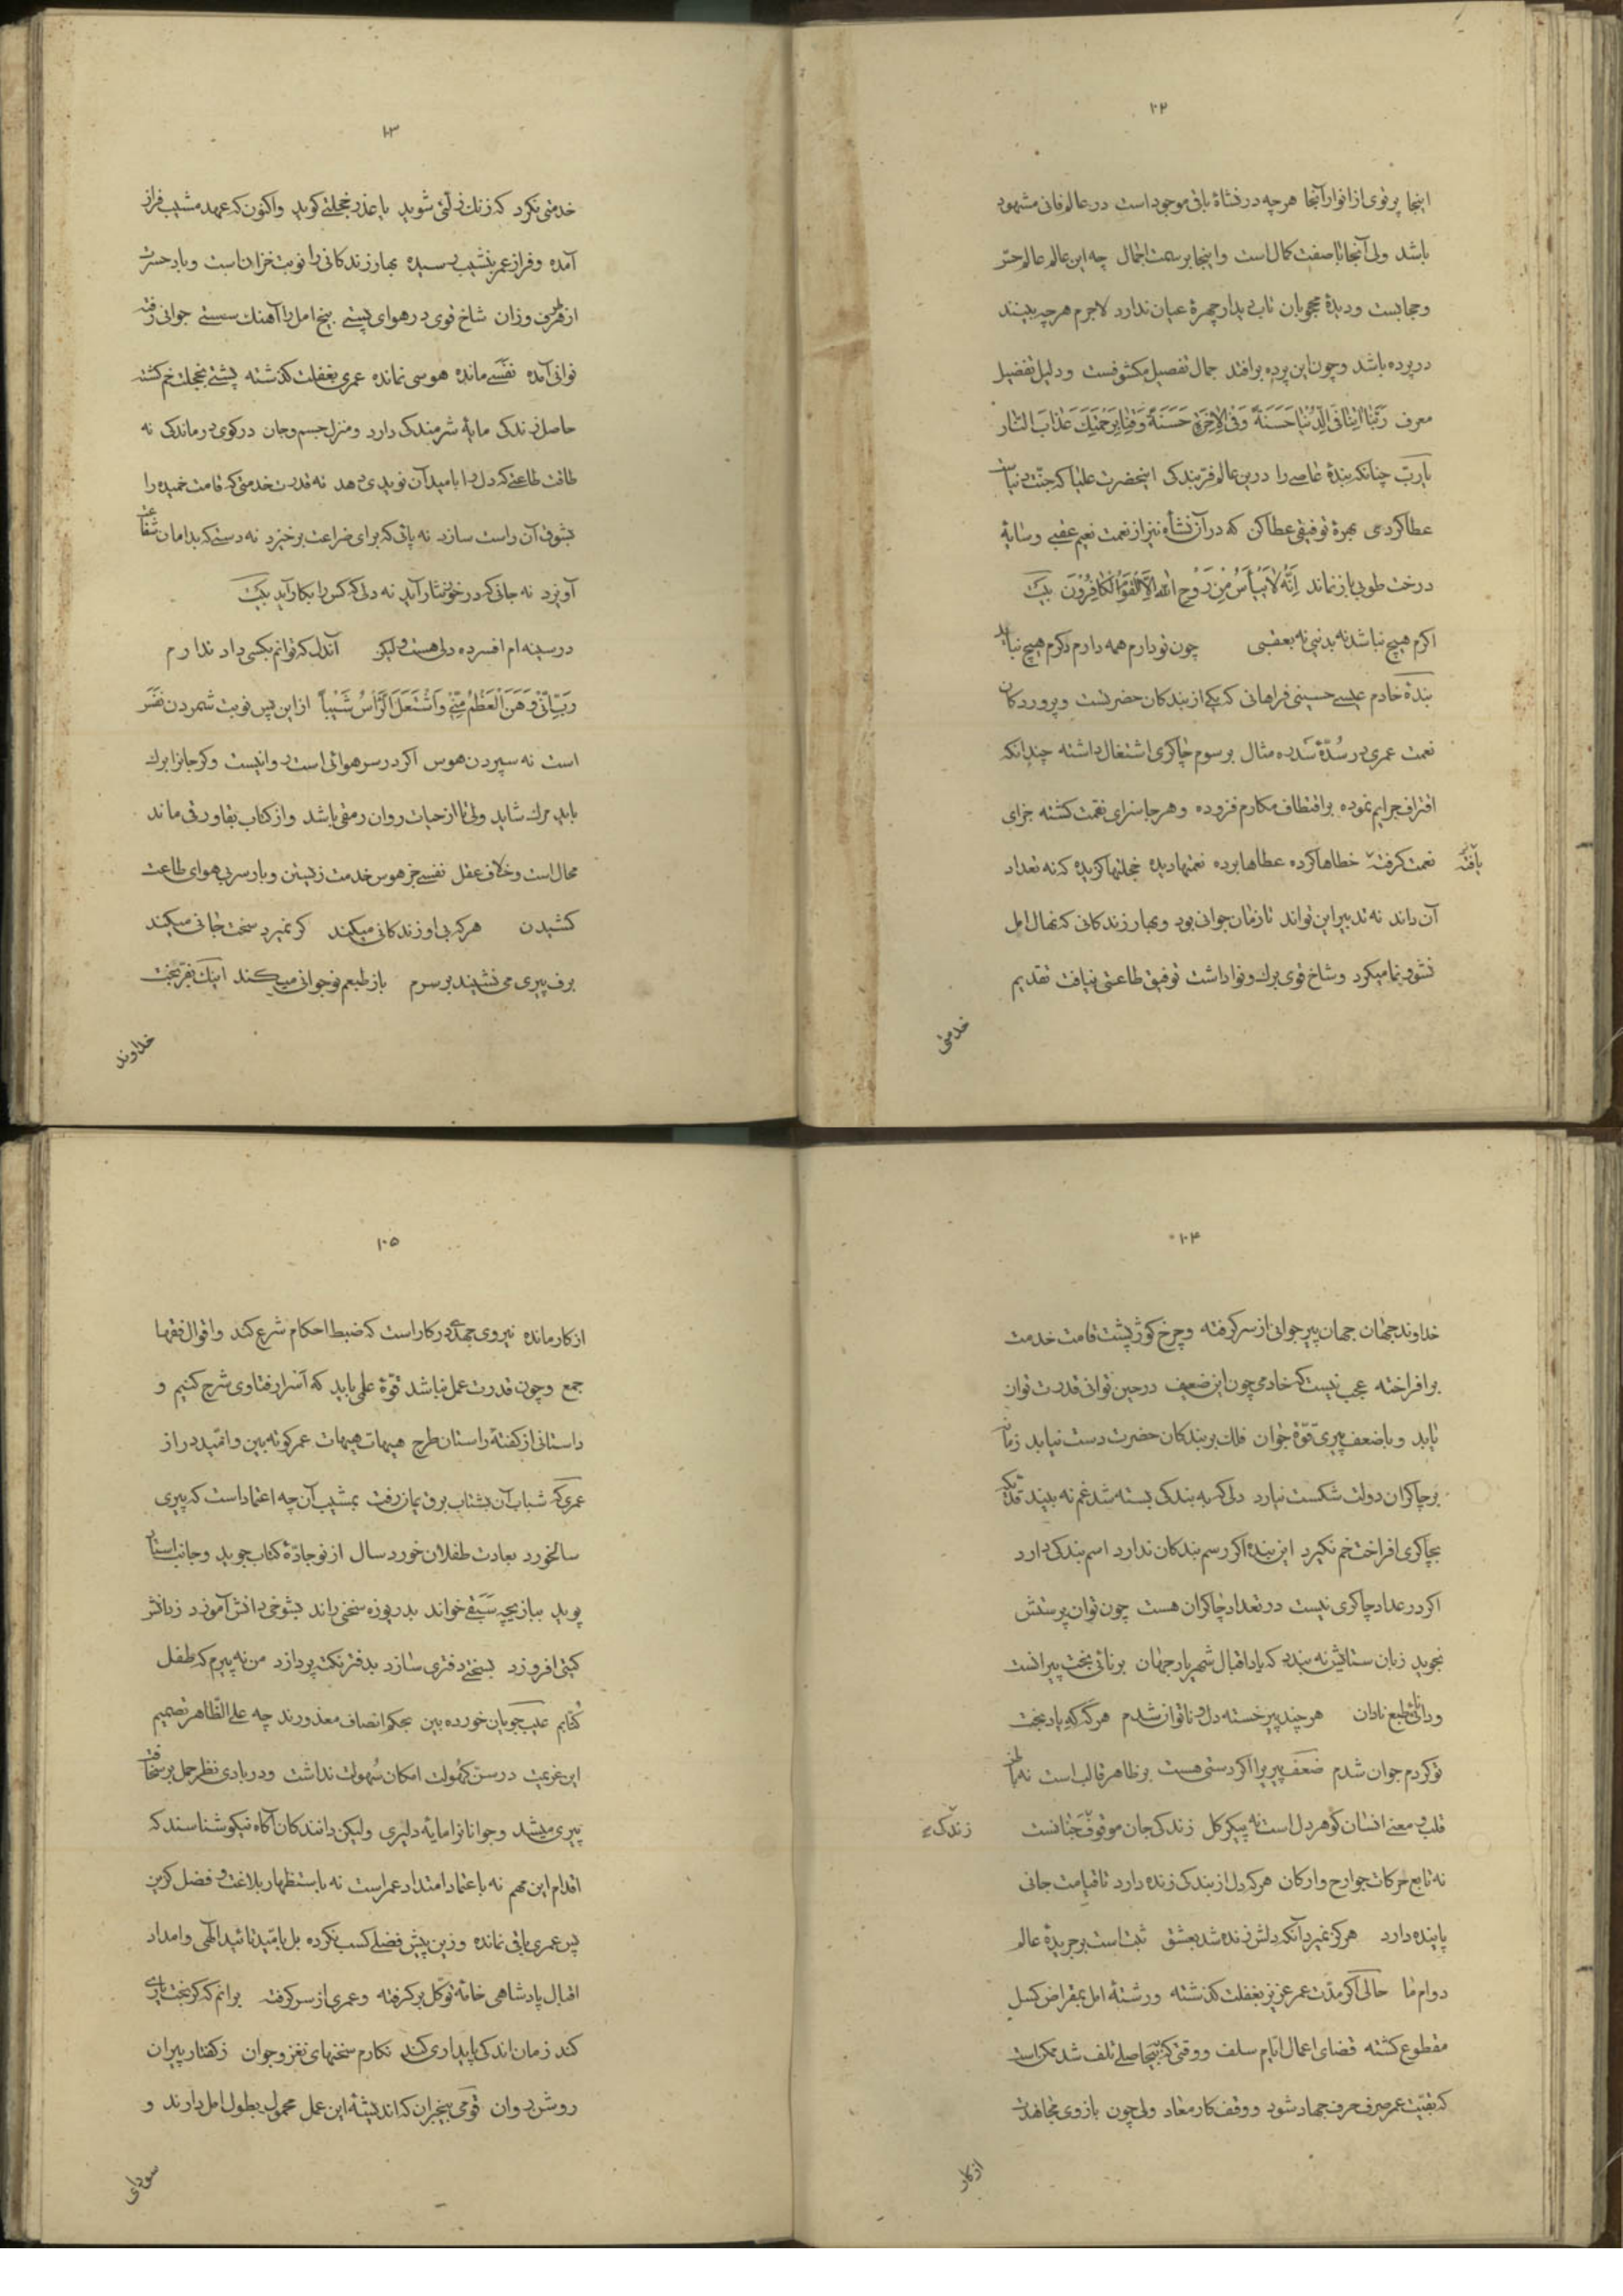 ۱۰۲
اینجا پرتوی از انوار آنجا هرچه در نشاهٔ باقی موجود است در عالم فانی مشهود
باشد ولی آنجا با صفت کمال است و اینجا بر سمت اجمال چه این عالم عالم ستر
و حجابست و دیدهٔ محجوبان تاب دیدار چهرهٔ عیان ندارد لاجرم هرچه بینند
در پرده باشد و چون این پرده برافتد جمال تفصیل مکشوفست و دلیل تفضیل
معرف رَبَّنَا اٰتِنَا فِی الدُّنْیَا حَسَنَةً وَ فِی الْاٰخِرَةِ حَسَنَةً وَ قِنَا بِرَحْمَتِكَ عَذَابَ النَّار
یا ربّ چنانکه بندهٔ عاصی را درین عالم فرّ بندکی اینحضرت علیا که جنّت دنیاست
عطا کردی بهرهٔ توفیقی عطا کن که در آن نشاه نیز از نعمت نعیم عقبی و سایهٔ
درخت طوبی باز نماند اِنَّهُ لَا یَیْأَسُ مِنْ رَوْحِ اللهِ اِلَّا الْقَوْمُ الْکَافِرُونَ بیت
اکرم هیچ نباشد نه بدنیی نه بعقبی چون تو دارم همه دارم دکرم هیچ نباید
بندهٔ خادم عیسی حسینی فراهانی که یکی از بندکان حضرتست و پروردکان
نعمت عمری در سُدّهٔ سَدره مثال برسوم چاکری اشتغال داشته چندانکه
اقتراف جرایم نموده بر اقتطاف مکارم فزوده و هرجا سزای نقمت کشته جزای
نعمت کرفته خطاها کرده عطاها برده نعمتها دیده خجلتها کزیده که نه تعداد
یافته
آن داند نه تدبیر این تواند تا زمان جوانی بود و بهار زندکانی که نهال امل
نشو و نما میکرد و شاخ قوی برك و نوا داشت توفیق طاعتی نیافت تقدیم
خدمتی
۱۰۳
خدمتی نکرد که زنك زلتی شوید یا عذر خجلتی کوید و اکنون که عهد مشیب فراز
آمده و فراز عمر بنشیب رسیده بهار زندکانی را نوبت خزان است و باد حسرت
از هر طرف وزان شاخ قوی در هوای پستی بیخ امل را آهنك سستی جوانی رفته
نوانی آمده نفسی مانده هوسی نمانده عمری بغفلت کذشته پشتی بخجلت خم کشته
حاصل زندکی مایهٔ شرمندکی دارد و منزل جسم و جان در کوی درماندکی نه
طاقت طاعتی که دل را بامید آن نویدی دهد نه قدرت خدمتی که قامت خمیده را
بشوق آن راست سازد نه پائی که برای ضراعت برخیزد نه دستی که بدامان شفاعت
آویزد نه جانی که در خور نثار آید نه دلی که کس را بکار آید بیت
در سینه ام افسرده دلی هست و لیکن آندل که توانم بکسی داد ندارم
رَبِّ اِنِّی وَهَنَ الْعَظْمُ مِنِّی وَاشْتَعَلَ الرَّأْسُ شَیْباً از این پس نوبت شمردن نفس
است نه سپردن هوس اکر در سر هوائی است روا نیست و کر جانرا برك
باید مرك شاید ولی تا از حیات روان رمقی باشد و از کتاب بقا ورقی ماند
محال است و خلاف عقل نفسی جز هوس خدمت زیستن و بار سر بی هوای طاعت
کشیدن هر که بی او زندکانی میکند کر نمیرد سخت جانی میکند
برف پیری می نشیند بر سرم باز طبعم نوجوانی میکند اینك بفرّ بخت
خداوند
۱۰۴
خداوند جهان جهان پیر جوانی از سر کرفته و چرخ کوژپشت قامت خدمت
برافراخته عجب نیست که خادمی چون این ضعیف در حین نوانی قدرت توان
یابد و با ضعف پیری قوّهٔ جوان فلك بر بندکان حضرت دست نیابد زمان
بر چاکران دولت شکست نیارد دلی که به بندکی بسته شد غم نه بیند قدّیکه
بچاکری افراخت خم نکیرد این بنده اکر رسم بندکان ندارد اسم بندکی دارد
اکر در عداد چاکری نیست در تعداد چاکران هست چون توان پرستش
نجوید زبان ستایش نه بندد که یاد اقبال شهریار جهان برنائی بخت پیرانست
و دانائی طبع نادان هر چند پیر خسته دل و ناتوان شدم هر که که یاد بخت
تو کردم جوان شدم ضعف پیری را اکر دستی هست بر ظاهر قالب است نه باطن
قلب و معنی انسان کوهر دل است نه پیکر کل زندکی جان موقوف جنانست
زندکی
نه تابع حرکات جوارح و ارکان هر که دل از بندکی زنده دارد تا قیامت جانی
پاینده دارد هرکز نمیرد آنکه دلش زنده شد بعشق ثبت است بر جریدهٔ عالم
دوام ما حالی اکر مدّت عمر عزیز بغفلت کذشته و رشتهٔ امل بمقراض کسل
مقطوع کشته قضای اعمال ایام سلف و وقتی که بیحاصلی تلف شد ممکن است
که بقیّت عمر صرف حرف جهاد شود و وقف کار معاد ولی چون بازوی مجاهدت
از کار
۱۰۵
از کار مانده نیروی جهدی در کار است که ضبط احکام شرع کند و اقوال فقها
جمع و چون قدرت عمل نباشد قوّهٔ علمی باید که اسرار فتاوی شرح کنیم و
داستانی از کفتهٔ راستان طرح هیهات هیهات عمر کوته بین و امّید دراز
عمری که شباب آن بشتاب برق یمان رفت بمشیب آن چه اعتماد است که پیری
سالخورد بعادت طفلان خورد سال از نو جادّهٔ کتاب جوید و جانب استاد
پوید ببازیچه سَبَقی خواند بدریوزه سخنی راند بشوخی دانش آموزد زدانش
کیتی افروزد بسختی دفتری سازد بدفتر نکته پردازد من نه پیرم که طفل
کتابم عیب جویان خورده بین بحکم انصاف معذورند چه علی الظاهر تصمیم
این عزیمت در سن کهولت امکان سُهولت نداشت و در بادی نظر حمل بر سخافت
پیری میشد و جوانانرا مایهٔ دلیری ولیکن دانندکان آکاه نیکو شناسند که
اقدام این مهم نه باعتماد امتداد عمر است نه باستظهار بلاغت و فضل کزین
پس عمری باقی نمانده و زین پیش فضلی کسب نکرده بل بامّید تائید الٓهی و امداد
اقبال پادشاهی خامهٔ توکّل برکرفته و عمری از سر کرفته برانم که کر بخت یاری
کند زمان اندکی پایداری کند نکارم سخنهای نغز و جوان ز کفتار پیران
روشن روان قومی بیخبران که اندیشهٔ این عمل محمول بطول امل دارند و
سودای